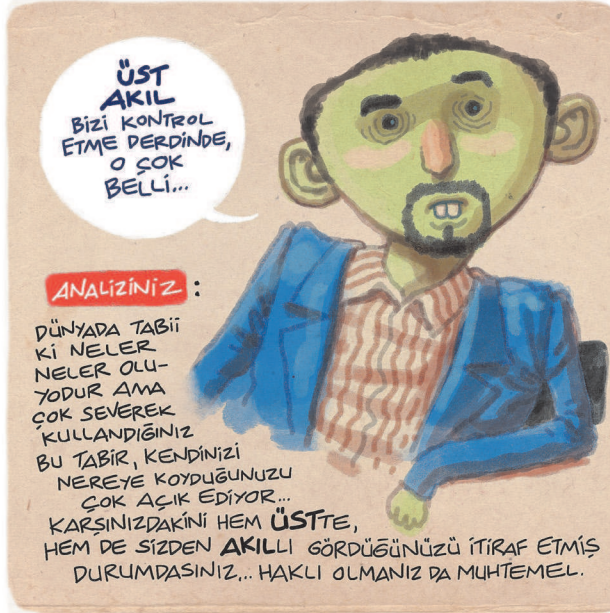 ÜST
AKIL
BİZİ KONTROL
ETME DERDİNDE,
O ÇOK
BELLİ...
ANALİZİNİZ :
DÜNYADA TABİİ
Kİ NELER
NELER OLU-
YODUR AMA
ÇOK SEVEREK
KULLANDIĞINIZ
BU TABİR, KENDİNİZİ
NEREYE KOYDUĞUNUZU
ÇOK AÇIK EDİYOR...
KARŞINIZDAKİNİ HEM ÜSTTE,
HEM DE SİZDEN AKILLI GÖRDÜĞÜNÜZÜ İTİRAF ETMİŞ
DURUMDASINIZ... HAKLI OLMANIZ DA MUHTEMEL.